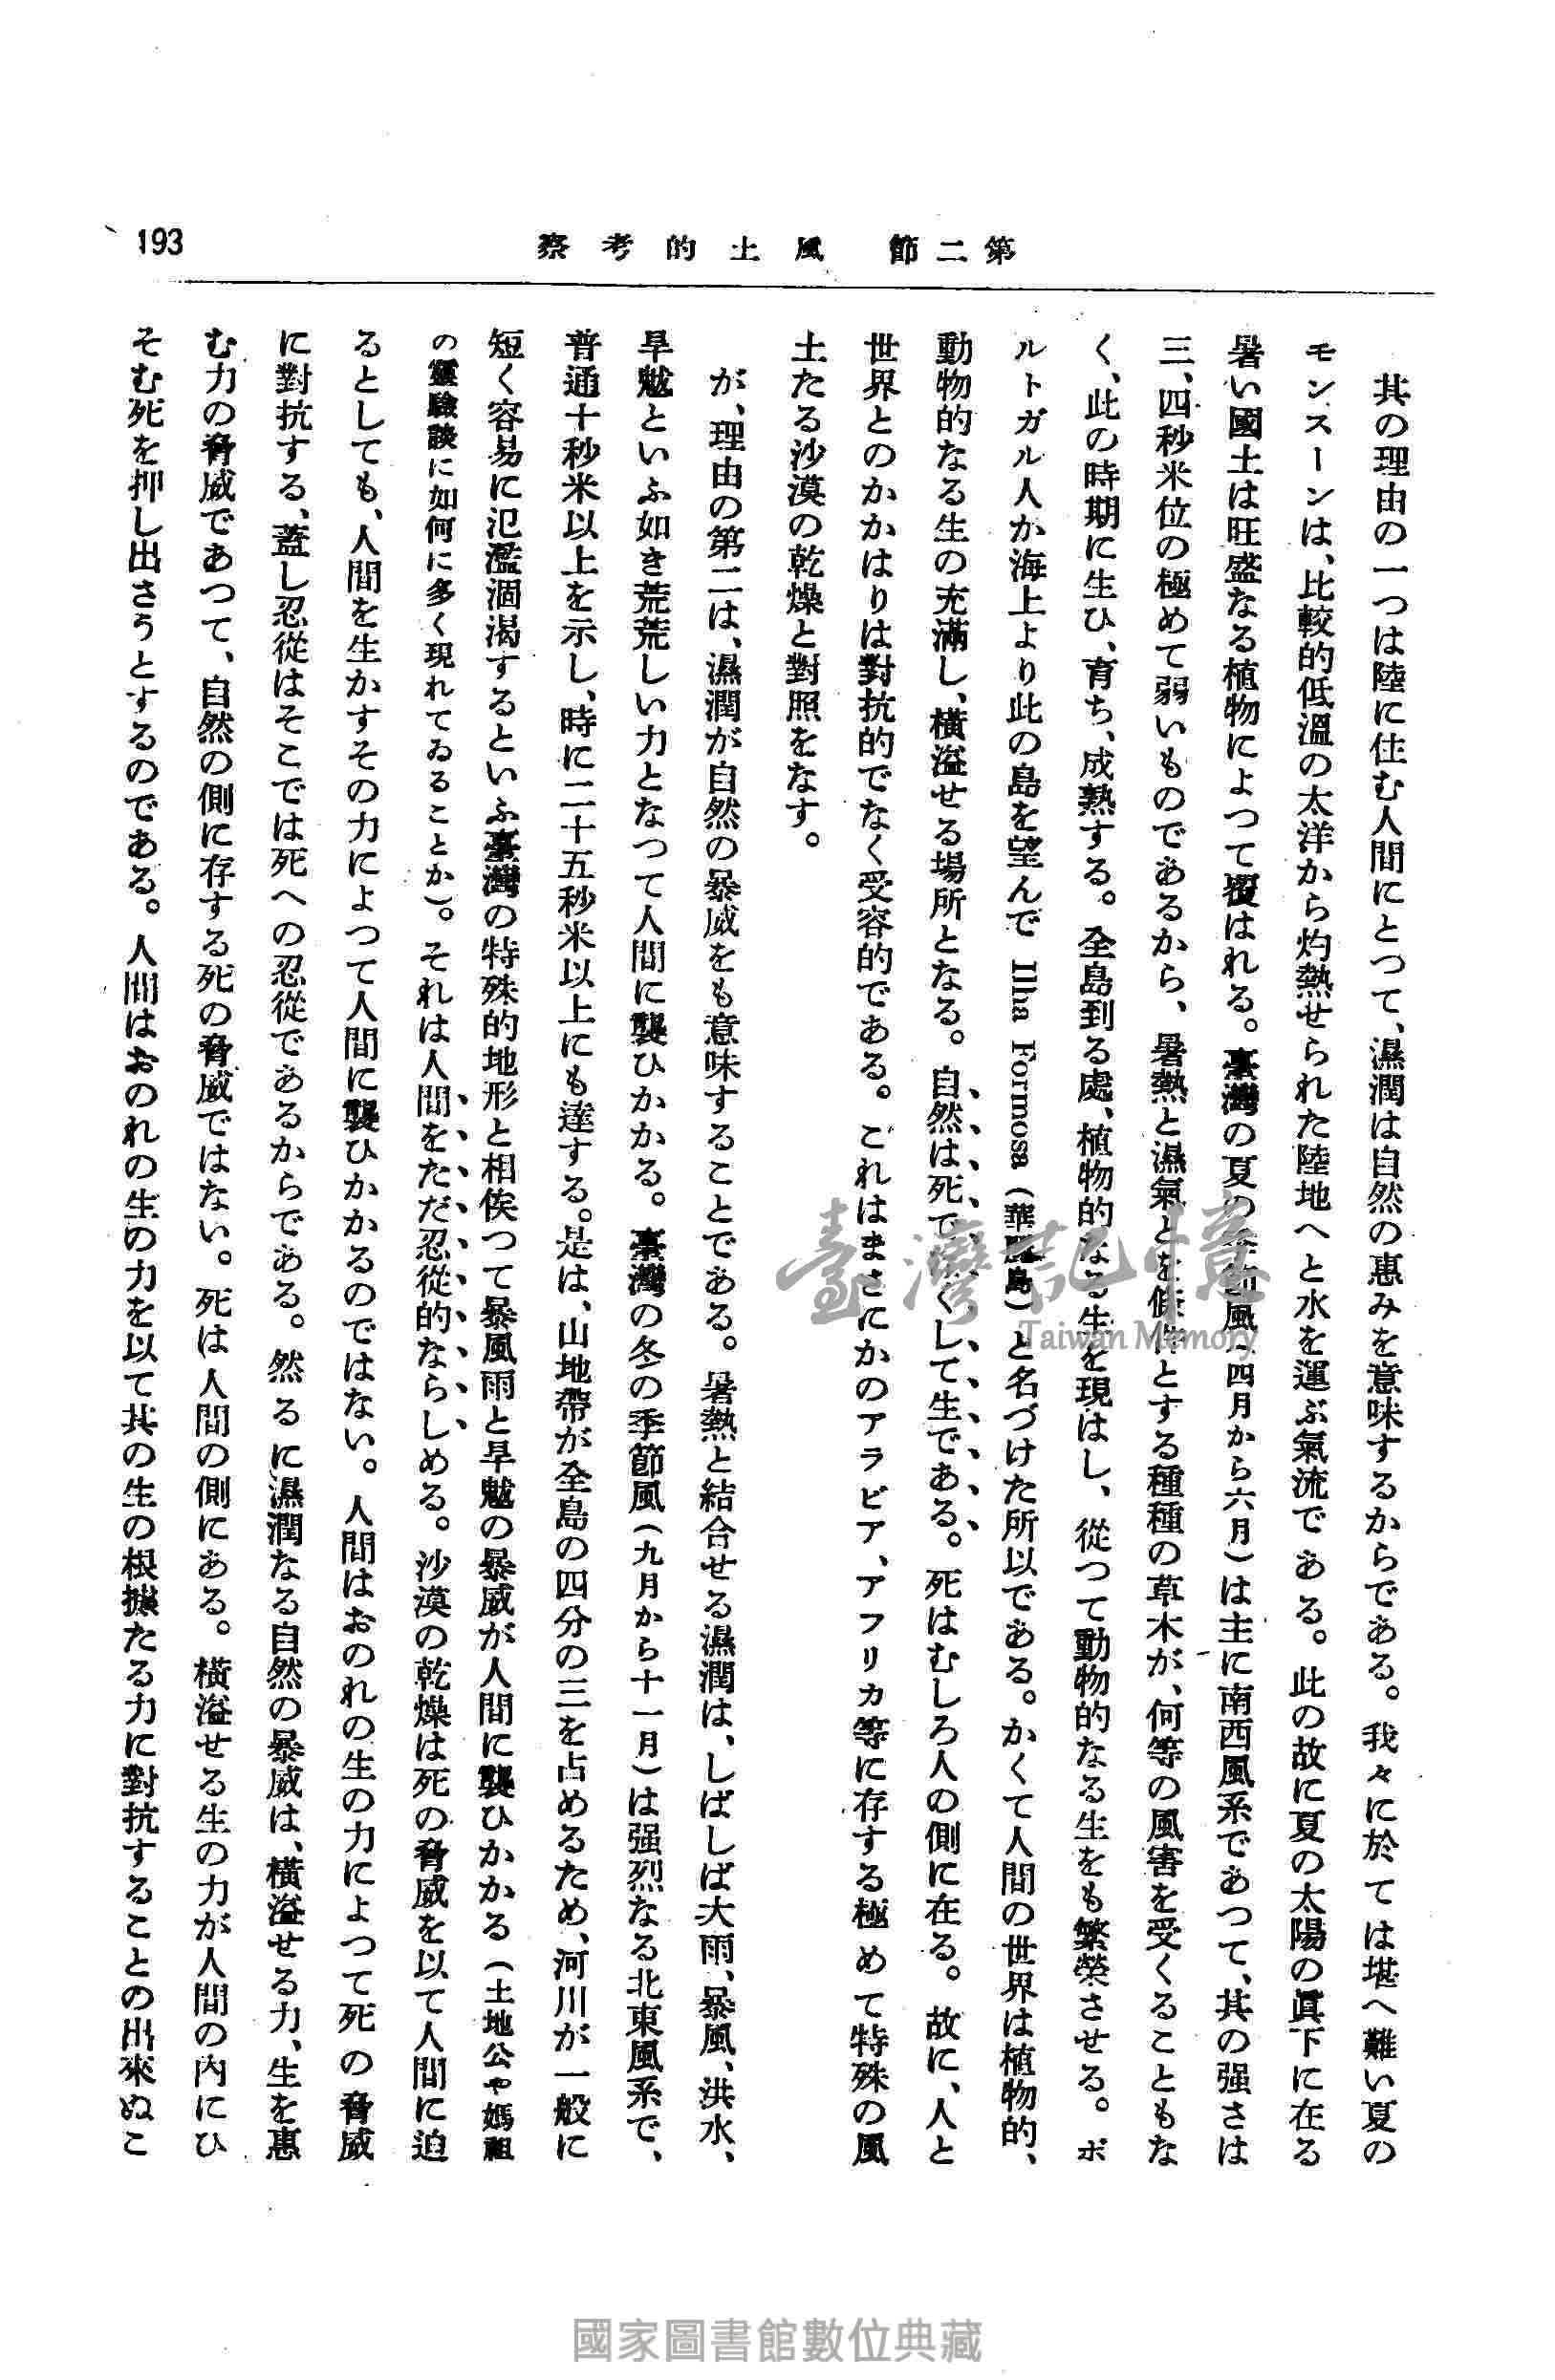 193
第二節　風土的考察
其の理由の一つは陸に住む人間にとつて、濕潤は自然の惠みを意味するからである。我々に於ては堪へ難い夏の
モンスーンは、比較的低溫の太洋から灼熱せられた陸地へと水を運ぶ氣流である。此の故に夏の太陽の眞下に在る
暑い國土は旺盛なる植物によつて覆はれる。臺灣の夏の季節風（四月から六月）は主に南西風系であつて、其の强さは
三、四秒米位の極めて弱いものであるから、暑熱と濕氣とを條件とする種種の草木が、何等の風害を受くることもな
く、此の時期に生ひ、育ち、成熟する。全島到る處、植物的なる生を現はし、從つて動物的なる生をも繁榮させる。ポ
ルトガル人か海上より此の島を望んで Ilha Formosa（華麗島）と名づけた所以である。かくて人間の世界は植物的、
動物的なる生の充滿し、橫溢せる場所となる。自然は死でなくして生である。死はむしろ人の側に在る。故に、人と
世界とのかかはりは對抗的でなく受容的である。これはまさにかのアラビア、アフリカ等に存する極めて特殊の風
土たる沙漠の乾燥と對照をなす。
が、理由の第二は、濕潤が自然の暴威をも意味することである。暑熱と結合せる濕潤は、しばしば大雨、暴風、洪水、
旱魃といふ如き荒荒しい力となつて人間に襲ひかかる。臺灣の冬の季節風（九月から十一月）は强烈なる北東風系で、
普通十秒米以上を示し、時に二十五秒米以上にも達する。是は、山地帶が全島の四分の三を占めるため、河川が一般に
短く容易に氾濫涸渴するといふ臺灣の特殊的地形と相俟つて暴風雨と旱魃の暴威が人間に襲ひかかる（土地公や媽祖
の靈驗談に如何に多く現れてゐることか）。それは人間をただ忍從的ならしめる。沙漠の乾燥は死の脅威を以て人間に迫
るとしても、人間を生かすその力によつて人間に襲ひかかるのではない。人間はおのれの生の力によつて死の脅威
に對抗する、蓋し忍從はそこでは死への忍從であるからである。然るに濕潤なる自然の暴威は、橫溢せる力、生を惠
む力の脅威であつて、自然の側に存する死の脅威ではない。死は人間の側にある。橫溢せる生の力が人間の內にひ
そむ死を押し出さうとするのである。人間はおのれの生の力を以て其の生の根據たる力に對抗することの出來ぬこ
臺灣記憶
Taiwan Memory
國家圖書館數位典藏